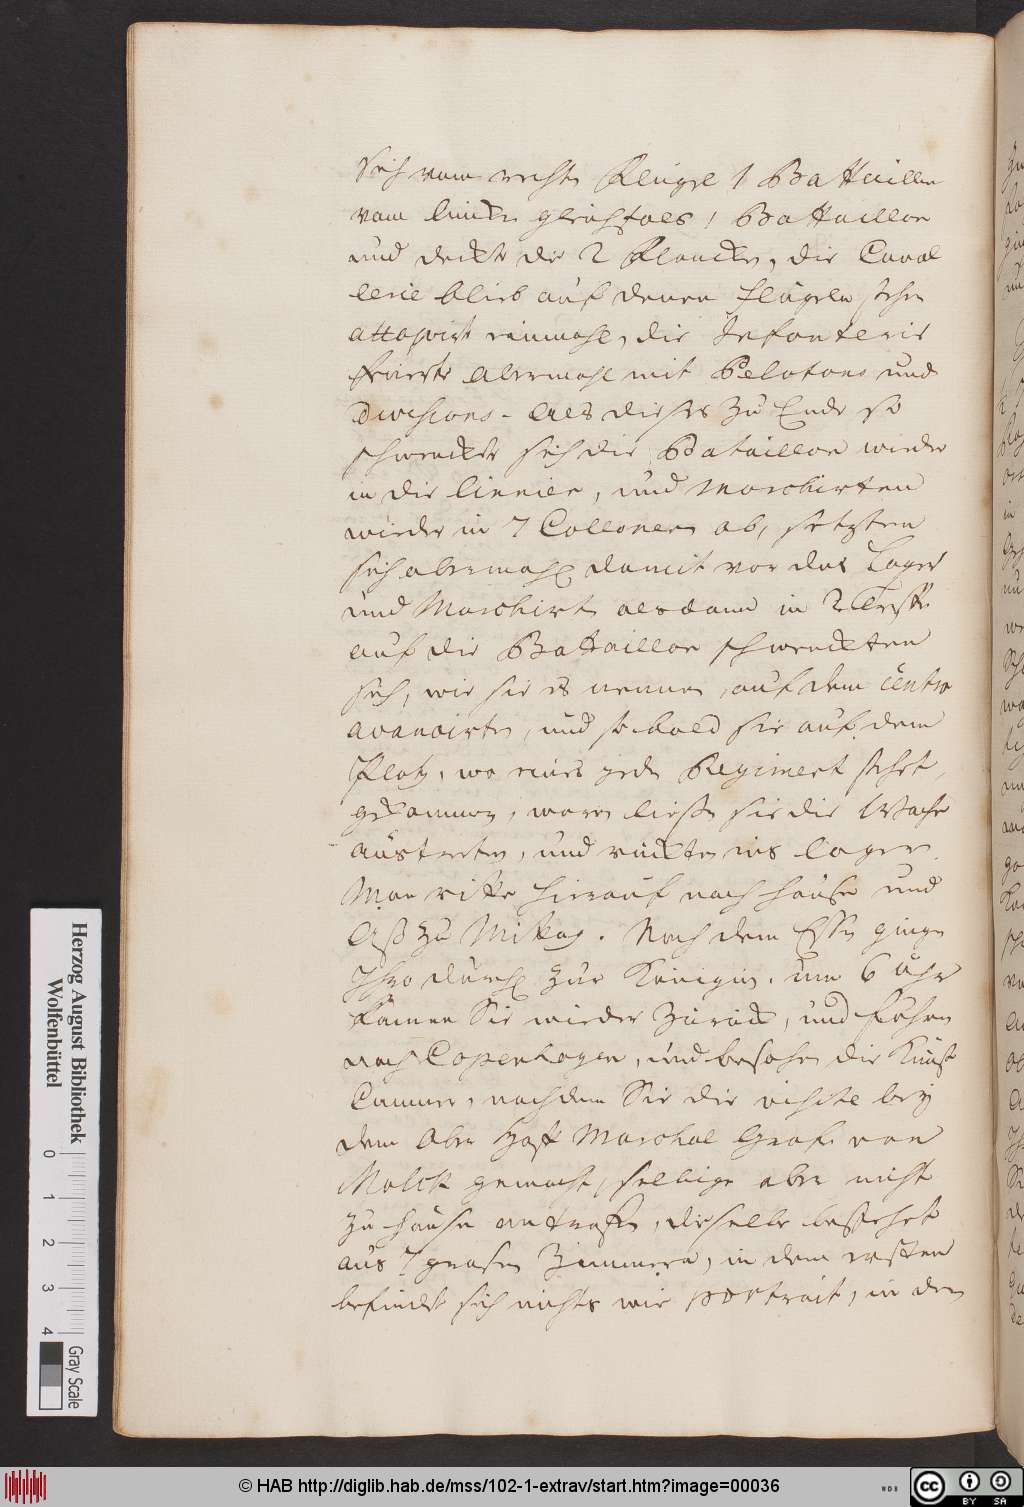 sich vom rechten Fleügel 1 Battaillon
vom lincken gleichfals 1 Battaillon
und deckte die 2 Flancken, die Caval
lerie blieb auf denen flügeln stehen
attaquirt einmahl, die Infanterie
feüerte abermahl mit Pelotons und
Divisions. Als dieses zu Ende so
schwenckte sich die Bataillon wieder
in die linnien, und marchirten
wieder in 7 Collonen ab, setzten
sich abermahl damit vor das Lager
und Marchirte alsdann in 2 Treffen
auf die Battaillon schwenckten
sich, wie sie es nennen, auf dem centro
avancirten, und so bald sie auf dem
Platz, wo eines jeden Regiment stehet,
gekommen, waren ließen sie die Wache
austreten, und rückten ins lager.
Man ritte hierauf nach hauße und
Aß zu Mittag. Nach dem Essen gingen
Ihro durchl zur Königin. um 6 Uhr
kamen Sie wieder Zurück, und fuhren
nach Copenhagen, und besahen die Kunst
Cammer, nachdem Sie die visite bey
dem Ober Hoff Marchal Grafen von
Molck gemacht, selbige aber nicht
zu hause antraffen, dieselbe bestehet
aus 7 grosen Zimmern, in dem ersten
befindet sich nichts wie portrait, in dem
Herzog August Bibliothek
Wolfenbüttel
0 1 2 3 4
Gray Scale
© HAB http://diglib.hab.de/mss/102-1-extrav/start.htm?image=00036
WDB
cc BY SA